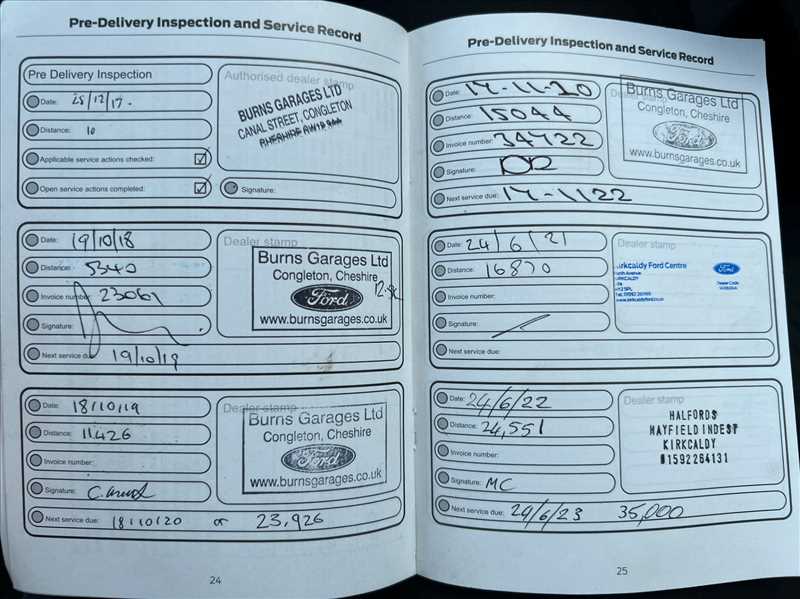 Pre-Delivery Inspection and Service Record
Pre Delivery Inspection
Date: 28/12/17.
Distance: 10
Applicable service actions checked: ☑
Open service actions completed: ☑
Authorised dealer stamp
BURNS GARAGES LTD
CANAL STREET, CONGLETON
Signature:
Date: 19/10/18
Distance: 5340
Invoice number: 23061
Signature:
Next service due: 19/10/19
Dealer stamp
Burns Garages Ltd
Congleton, Cheshire
Ford
www.burnsgarages.co.uk
Date: 18/10/19
Distance: 11426
Invoice number:
Signature:
Next service due: 18/10/20 or 23,926
Dealer stamp
Burns Garages Ltd
Congleton, Cheshire
Ford
www.burnsgarages.co.uk
24
Pre-Delivery Inspection and Service Record
Date: 17-11-20
Distance: 15044
Invoice number: 34722
Signature:
Next service due: 17-1122
Dealer stamp
Burns Garages Ltd
Congleton, Cheshire
Ford
www.burnsgarages.co.uk
Date: 24/6/21
Distance: 16870
Invoice number:
Signature:
Next service due:
Dealer stamp
Kirkcaldy Ford Centre
Ford
Date: 24/6/22
Distance: 24,551
Invoice number:
Signature: MC
Next service due: 24/6/23 35,000
Dealer stamp
HALFORDS
MAYFIELD INDEST
KIRKCALDY
01592264131
25